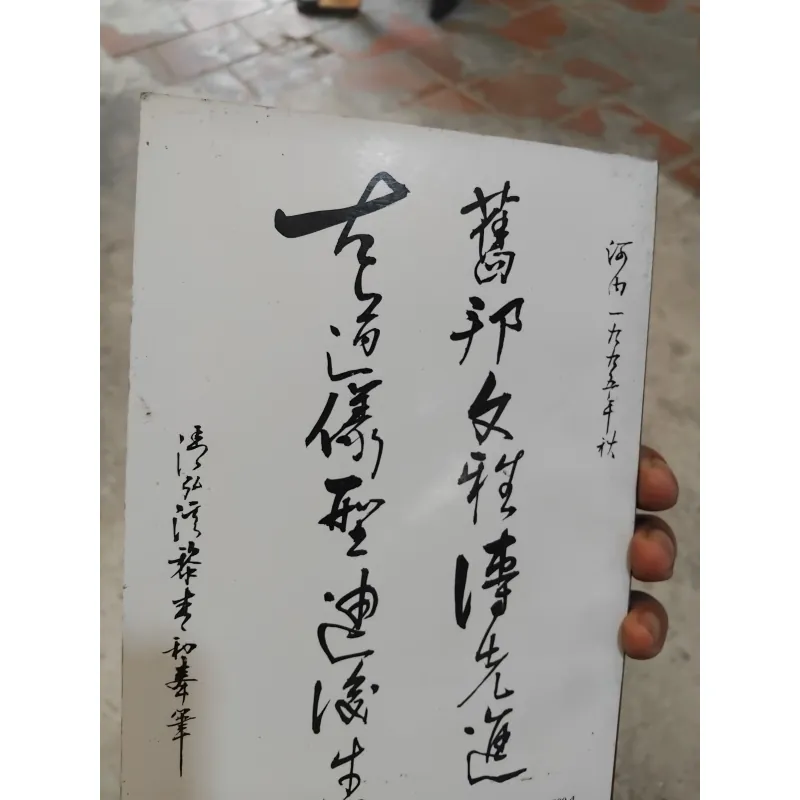 河内一九九五年秋
舊邦文雅傳先進
古道儀型迪後生
清弘溪黎春和奉筆